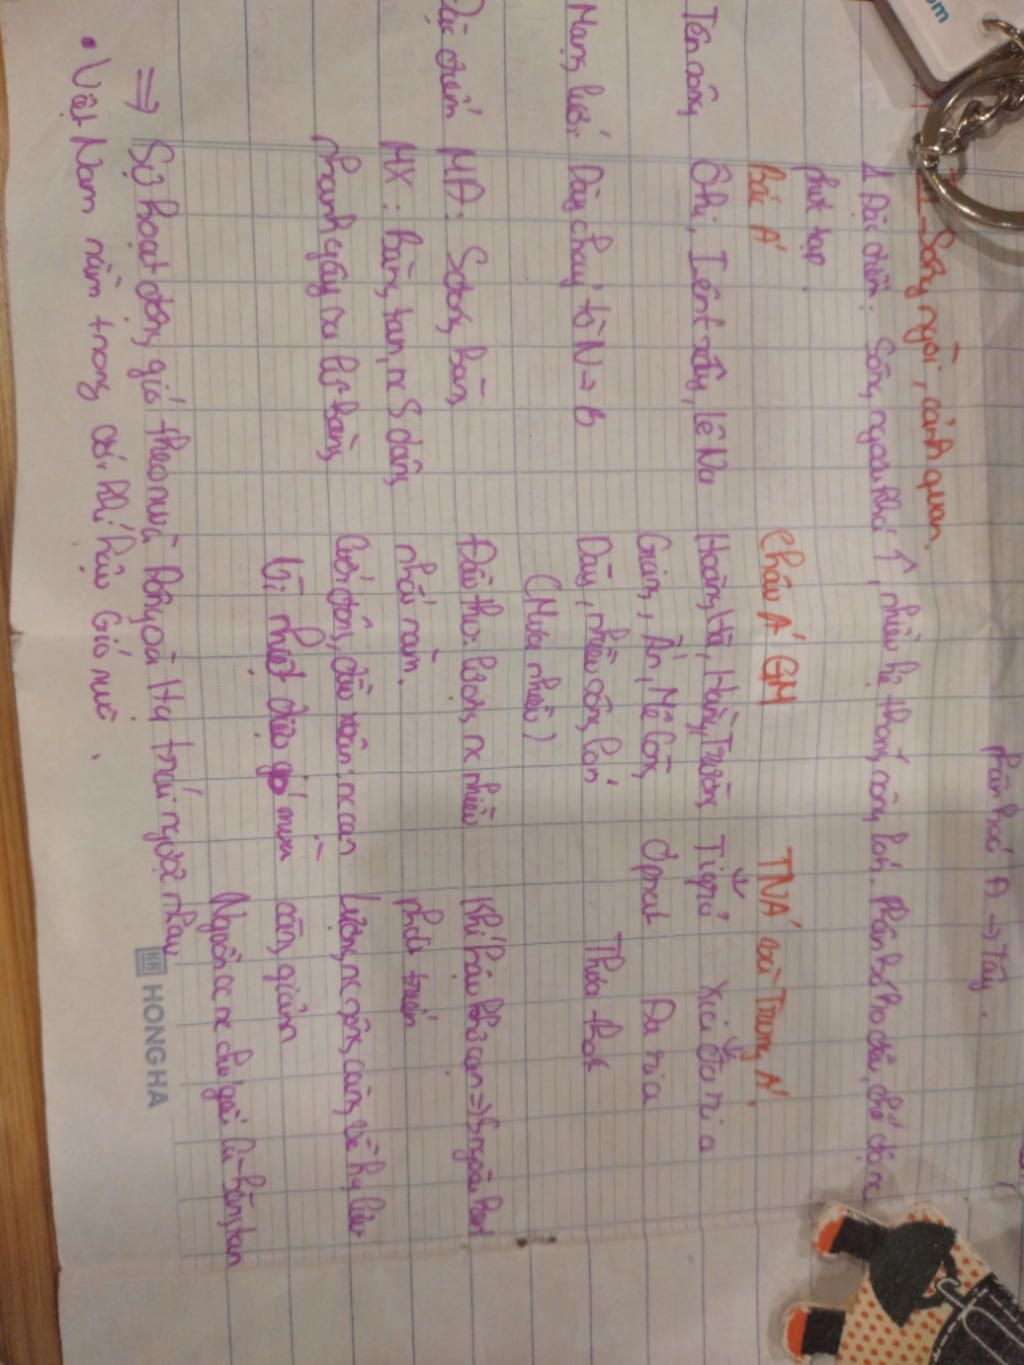 phân hoá Đ → Tây.
II_ Sông ngòi, cảnh quan.
1 Đặc điểm: Sông ngòi khá ↑, nhiều hệ thống sông lớn. Phân bố ko đều, chế độ nc
phức tạp.
Bắc Á Châu Á GM TNÁ và Trung Á.
Tên sông Ôbi, Iênitxây, lêNa Hoàng Hà, Hằng, Trường Tigrơ Xia Đaria
Giang, Ấn, Mê Công, Ơphrat Đaria
Mạng lưới Dày chảy từ N → B Dày, nhiều sông lớn Thưa thớt
(Mưa nhiều)
Đặc điểm MĐ: S đóng băng Đầu thu: lượng nc nhiều Khí hậu khô cạn => S ngòi kém
MX: Băng tan, nc S dâng nhất năm. phát triển
nhanh gây ra lũ băng Cuối đông, đầu xuân: nc cạn Lượng nc sông càng về hạ lưu
Vì nhiệt điệu gió mùa càng giảm
Nguồn cc nc chủ yếu là băng tan
=> Sự hoạt động gió theo mùa Đông và Hạ trái ngược nhau
• Việt Nam nằm trong đới khí hậu Gió mùa.
HONG HA
om